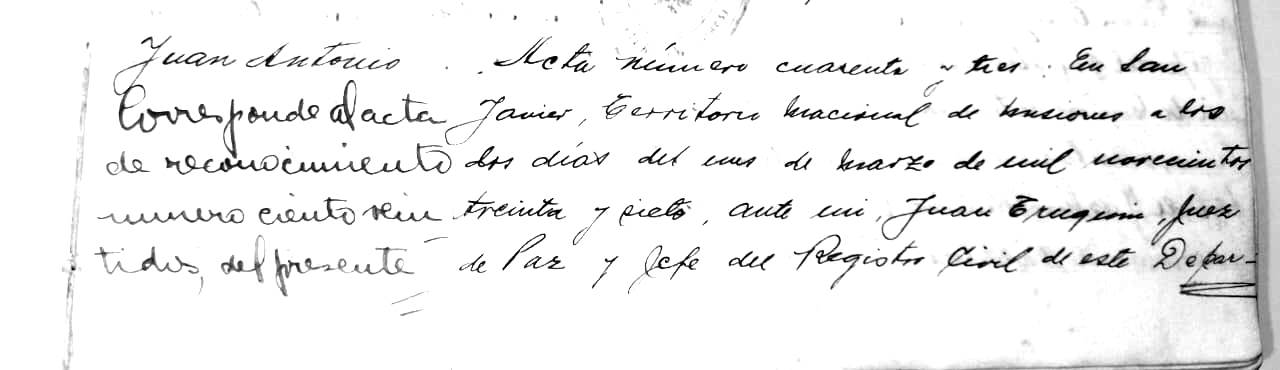 Juan Antonio
Corresponde al acta
de reconocimiento
numero ciento vein
tidos, del presente
Acta número cuarenta y tres. En San
Javier, Territorio Nacional de Misiones a los
dos días del mes de Marzo de mil novecientos
treinta y siete, ante mi, Juan, Juez
de Paz y Jefe del Registro Civil de este Depar-